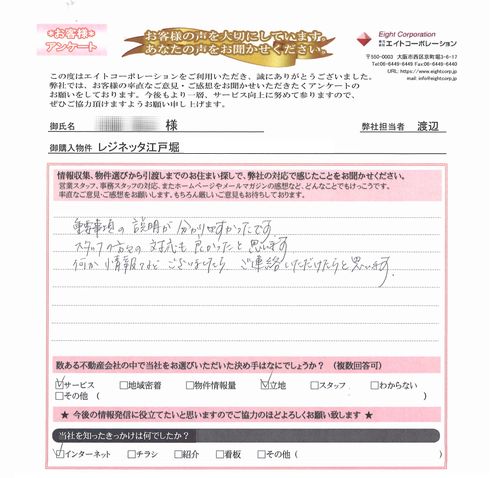 *お客様*
アンケート
お客様の声を大切にしています。
あなたの声をお聞かせください。
Eight Corporation
株式会社エイトコーポレーション
〒550-0003 大阪市西区京町堀3-6-17
Tel06-6449-6449 Fax06-6449-6440
URL. https://www.eightcorp.jp
mail: info@eightcorp.jp
この度はエイトコーポレーションをご利用いただき、誠にありがとうございました。
弊社では、お客様の率直なご意見・ご感想をお聞かせいただきたくアンケートの
お願いをしております。今後もより一層、サービス向上に努めて参りますので、
ぜひご協力頂けますようお願い申し上げます。
御氏名 様 弊社担当者 渡辺
御購入物件 レジネッタ江戸堀
情報収集、物件選びから引渡しまでのお住まい探しで、弊社の対応で感じたことをお聞かせください。
営業スタッフ、事務スタッフの対応、またホームページやメールマガジンの感想など、どんなことでもけっこうです。
率直なご意見・ご感想をお願いします。もちろん厳しいご意見もお待ちしております。
重要事項の説明が分かりやすかったです。
スタッフの方々の対応も良かったと思います。
何か情報などございましたら ご連絡いただけたらと思います。
数ある不動産会社の中で当社をお選びいただいた決め手はなにでしょうか? (複数回答可)
☑サービス □地域密着 □物件情報量 ☑立地 □スタッフ □わからない
□その他 ( )
★ 今後の情報発信に役立てたいと思いますのでご協力のほどよろしくお願い致します ★
当社を知ったきっかけは何でしたか?
☑インターネット □チラシ □紹介 □看板 □その他 ( )